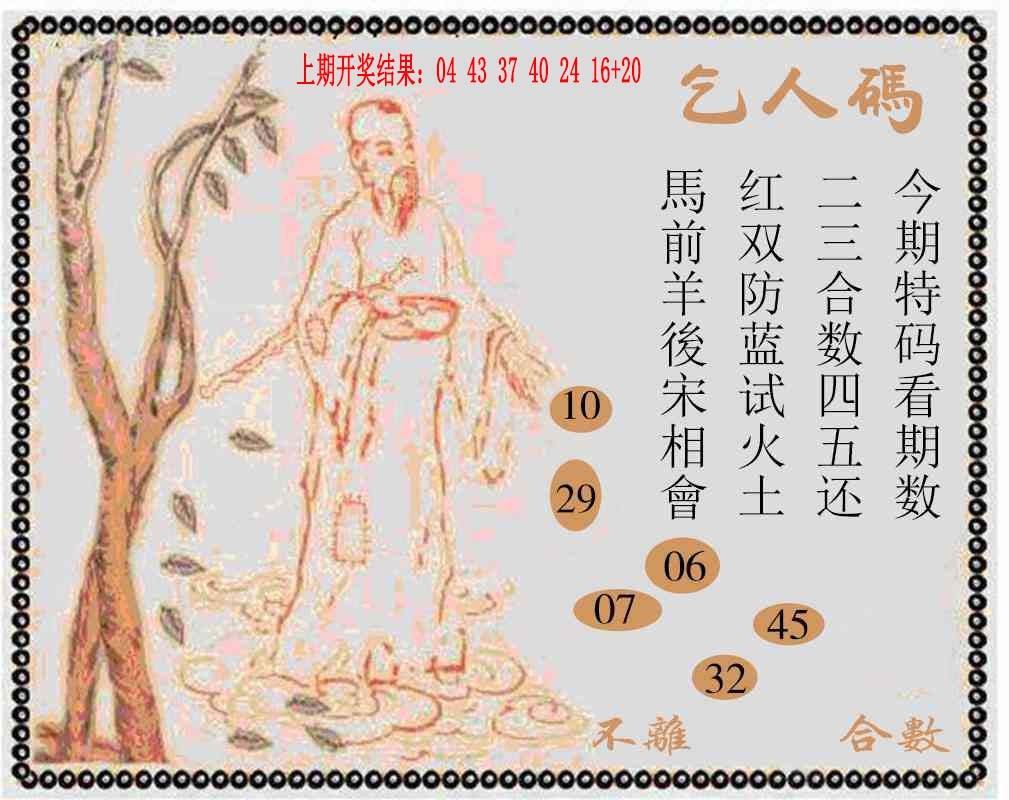 上期开奖结果：04 43 37 40 24 16+20
乞人碼
今期特码看期数
二三合数四五还
红双防蓝试火土
馬前羊後宋相會
10
29
06
07
45
32
不離 合數